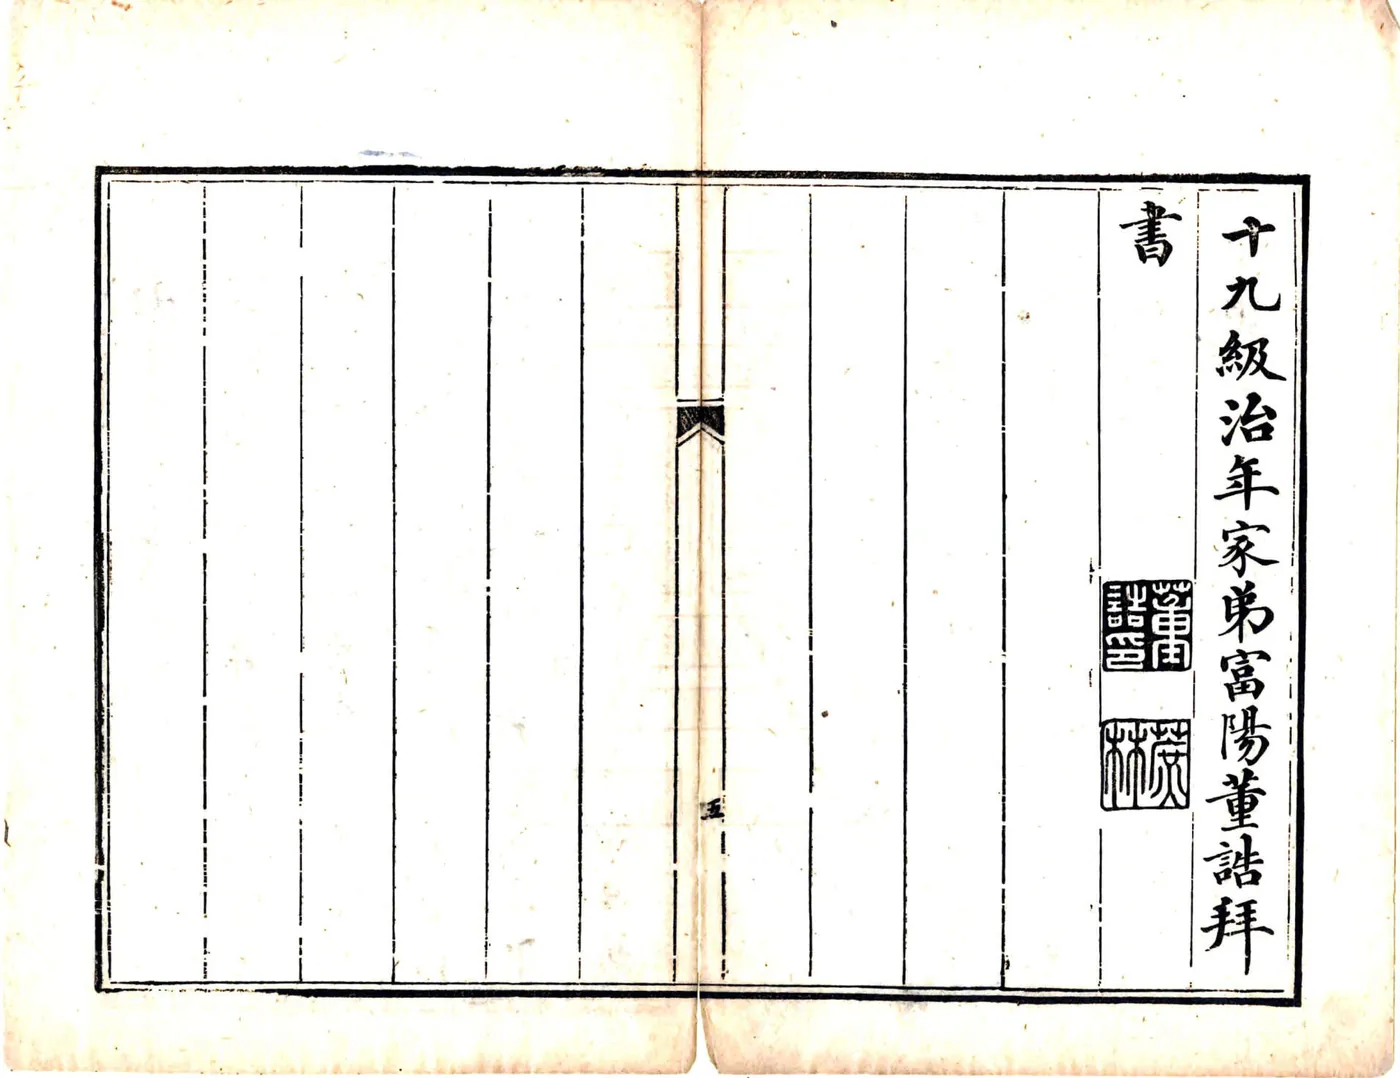 十九級治年家弟富陽董誥拜
書
董誥印
蔗林
五